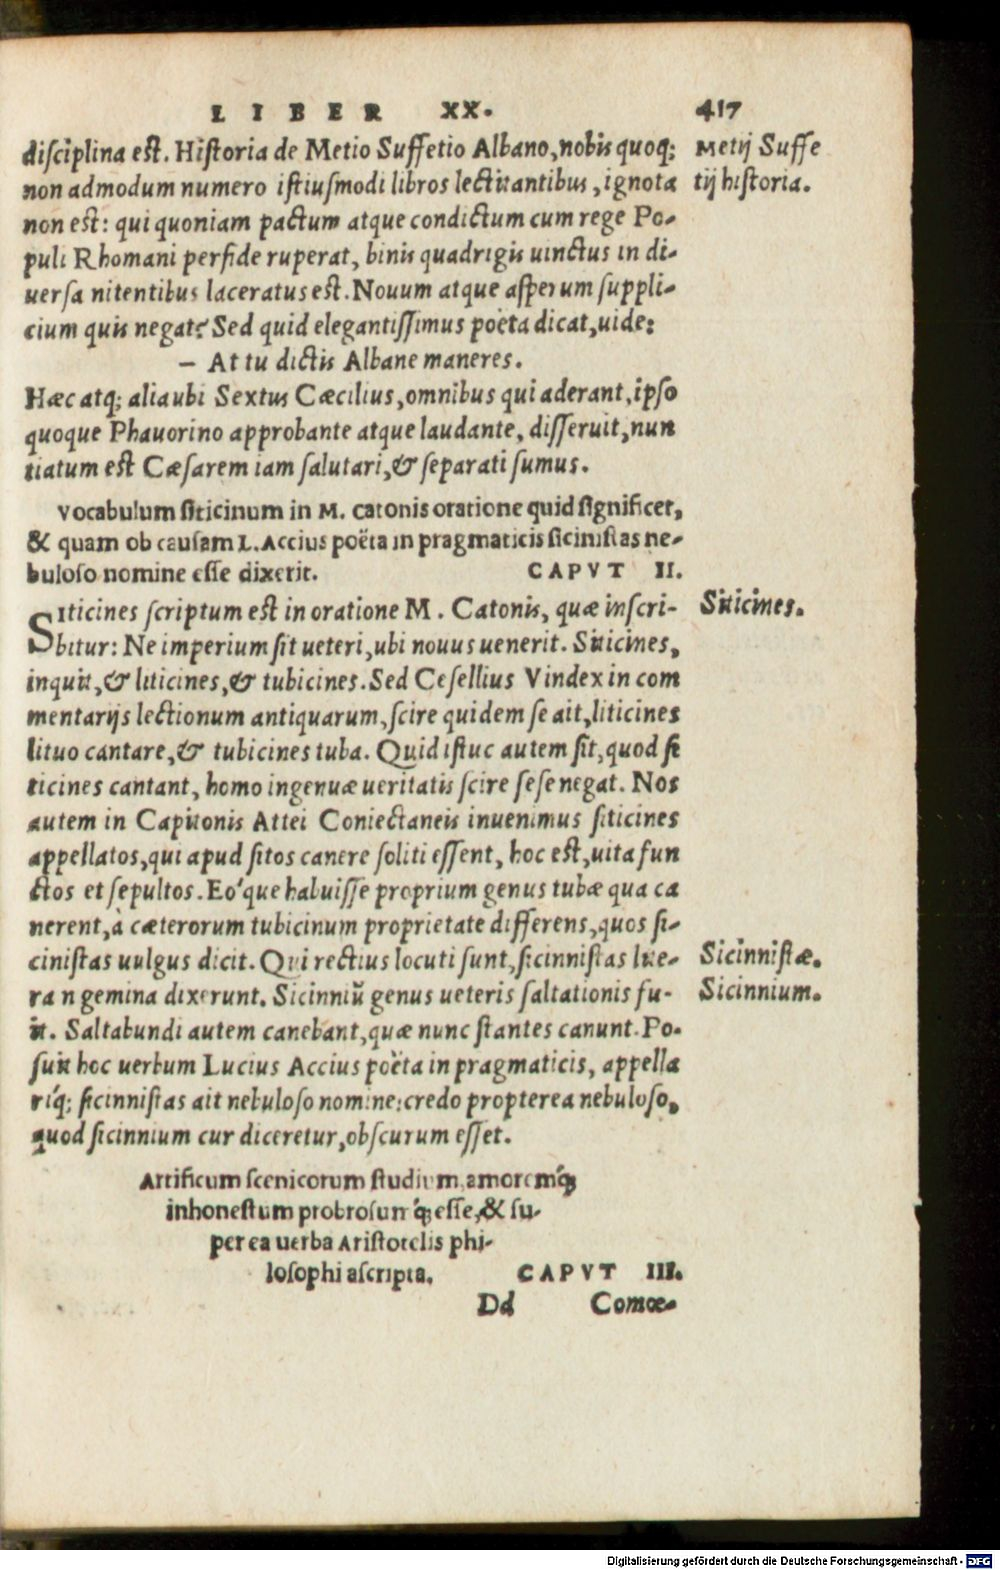 LIBER XX. 417
disciplina est. Historia de Metio Suffetio Albano, nobis quoq;
Metij Suffe
non admodum numero istiusmodi libros lectitantibus, ignota
tij historia.
non est: qui quoniam pactum atque condictum cum rege Po-
puli Rhomani perfide ruperat, binis quadrigis uinctus in di-
uersa nitentibus laceratus est. Nouum atque asperum suppli-
cium quis negat? Sed quid elegantissimus poëta dicat, uide:
— At tu dictis Albane maneres.
Hæc atq; alia ubi Sextus Cæcilius, omnibus qui aderant, ipso
quoque Phauorino approbante atque laudante, disseruit, nun
tiatum est Cæsarem iam salutari, & separati sumus.
Vocabulum siticinum in M. Catonis oratione quid significet,
& quam ob causam L. Accius poëta in pragmaticis sicinistas ne-
buloso nomine esse dixerit. CAPVT II.
SIticines scriptum est in oratione M. Catonis, quæ inscri-
Siticines.
bitur: Ne imperium sit ueteri, ubi nouus uenerit. Siticines,
inquit, & liticines, & tubicines. Sed Cesellius Vindex in com
mentarijs lectionum antiquarum, scire quidem se ait, liticines
lituo cantare, & tubicines tuba. Quid istuc autem sit, quod si
ticines cantant, homo ingenuæ ueritatis scire sese negat. Nos
autem in Capitonis Attei Coniectaneis inuenimus siticines
appellatos, qui apud sitos canere soliti essent, hoc est, uita fun
ctos et sepultos. Eo'que habuisse proprium genus tubæ qua ca
nerent, à cæterorum tubicinum proprietate differens, quos si-
cinistas uulgus dicit. Qui rectius locuti sunt, sicinnistas lite-
Sicinnistæ.
ra n gemina dixerunt. Sicinniũ genus ueteris saltationis fu-
Sicinnium.
it. Saltabundi autem canebant, quæ nunc stantes canunt. Po-
suit hoc uerbum Lucius Accius poëta in pragmaticis, appella
ríq; sicinnistas ait nebuloso nomine: credo propterea nebuloso,
quod sicinnium cur diceretur, obscurum esset.
Artificum scenicorum studium, amoremq́;
inhonestum probrosumq́; esse, & su-
per ea uerba Aristotelis phi-
losophi ascripta. CAPVT III.
Dd Comœ-
Digitalisierung gefördert durch die Deutsche Forschungsgemeinschaft - DFG